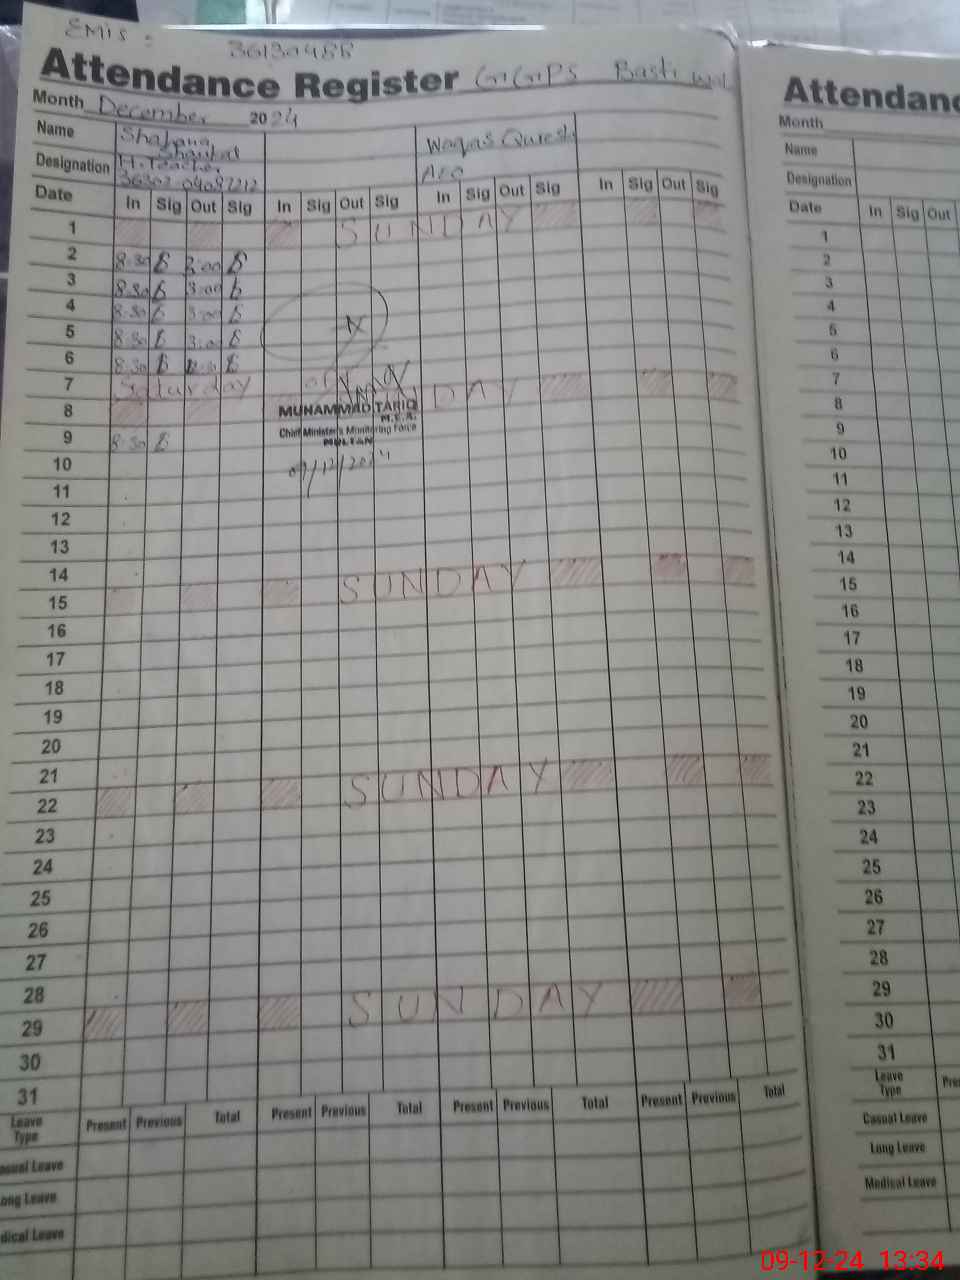 EMIS :
36130488
Attendance Register GGPS Basti
Month December 2024
Name Shabana Shaukat Waqas Qureshi
Designation H.Teacher AEO
36302-04087212
Date In Sig Out Sig In Sig Out Sig In Sig Out Sig In Sig Out Sig
1 SUNDAY
2 8:30 3:00
3 8:30 3:00
4 8:30 3:00
5 8:30 3:00
6 8:30
7 Saturday
8 SUNDAY
MUHAMMAD TARIQ
M.E.A.
Chief Minister's Monitoring Force
MULTAN
9 8:30
09/12/2024
10
11
12
13
14
15 SUNDAY
16
17
18
19
20
21
22 SUNDAY
23
24
25
26
27
28
29 SUNDAY
30
31
Leave Type Present Previous Total Present Previous Total Present Previous Total Present Previous Total
Casual Leave
Long Leave
Medical Leave
Attendance
Month
Name
Designation
Date In Sig Out
1
2
3
4
5
6
7
8
9
10
11
12
13
14
15
16
17
18
19
20
21
22
23
24
25
26
27
28
29
30
31
Leave Type
Casual Leave
Long Leave
Medical Leave
09-12-24 13:34